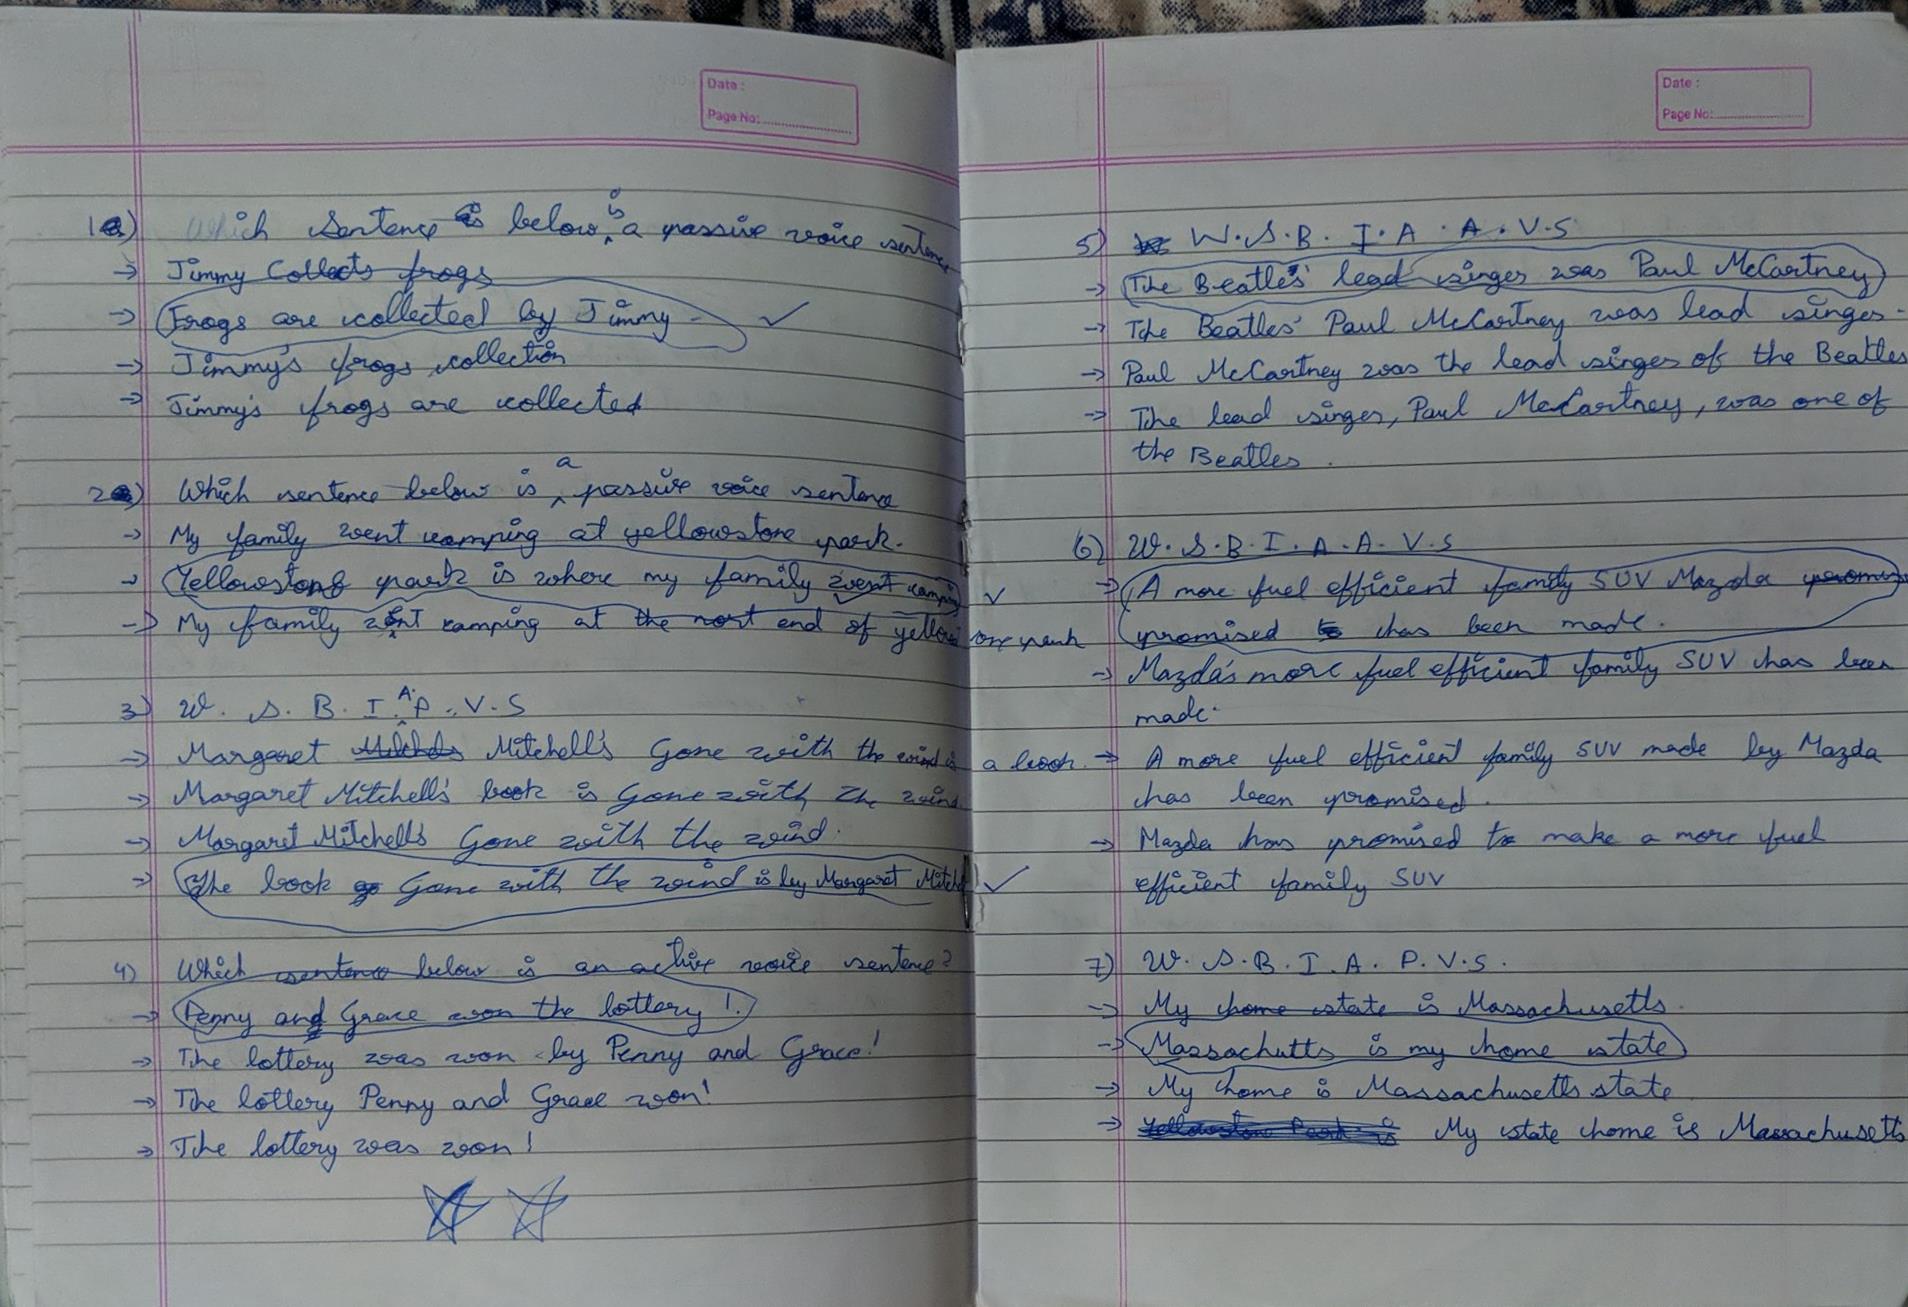 Date :
Page No:
1) Which sentence below is a passive voice sentence
→ Jimmy Collects frogs
→ Frogs are collected by Jimmy - ✓
→ Jimmy's frogs collection
→ Jimmy's frogs are collected
2) Which sentence below is a passive voice sentence
→ My family went camping at yellowstone park.
→ Yellowstone park is where my family went camping ✓
→ My family went camping at the nort end of yellowstone park
3) W. S. B. I A. P. V. S
→ Margaret Mitchell's Gone with the wind is a book.
→ Margaret Mitchell's book is Gone with the wind
→ Margaret Mitchell's Gone with the wind.
→ The book Gone with the wind is by Margaret Mitchell ✓
4) Which sentence below is an active voice sentence?
→ Penny and Grace won the lottery !.
→ The lottery was won by Penny and Grace!
→ The lottery Penny and Grace won!
→ The lottery was won!
Date :
Page No:
5) W. S. B. I. A. A. V. S
→ The Beatles' lead singer was Paul McCartney
→ The Beatles' Paul McCartney was lead singer.
→ Paul McCartney was the lead singer of the Beatles
→ The lead singer, Paul McCartney, was one of
the Beatles.
6) W. S. B. I. A. A. V. S
→ A more fuel efficient family SUV Mazda
promised has been made.
→ Mazda's more fuel efficient family SUV has been
made.
→ A more fuel efficient family SUV made by Mazda
has been promised.
→ Mazda has promised to make a more fuel
efficient family SUV
7) W. S. B. I. A. P. V. S.
→ My home state is Massachusetts.
→ Massachutts is my home state
→ My home is Massachusetts state
→ My state home is Massachusetts